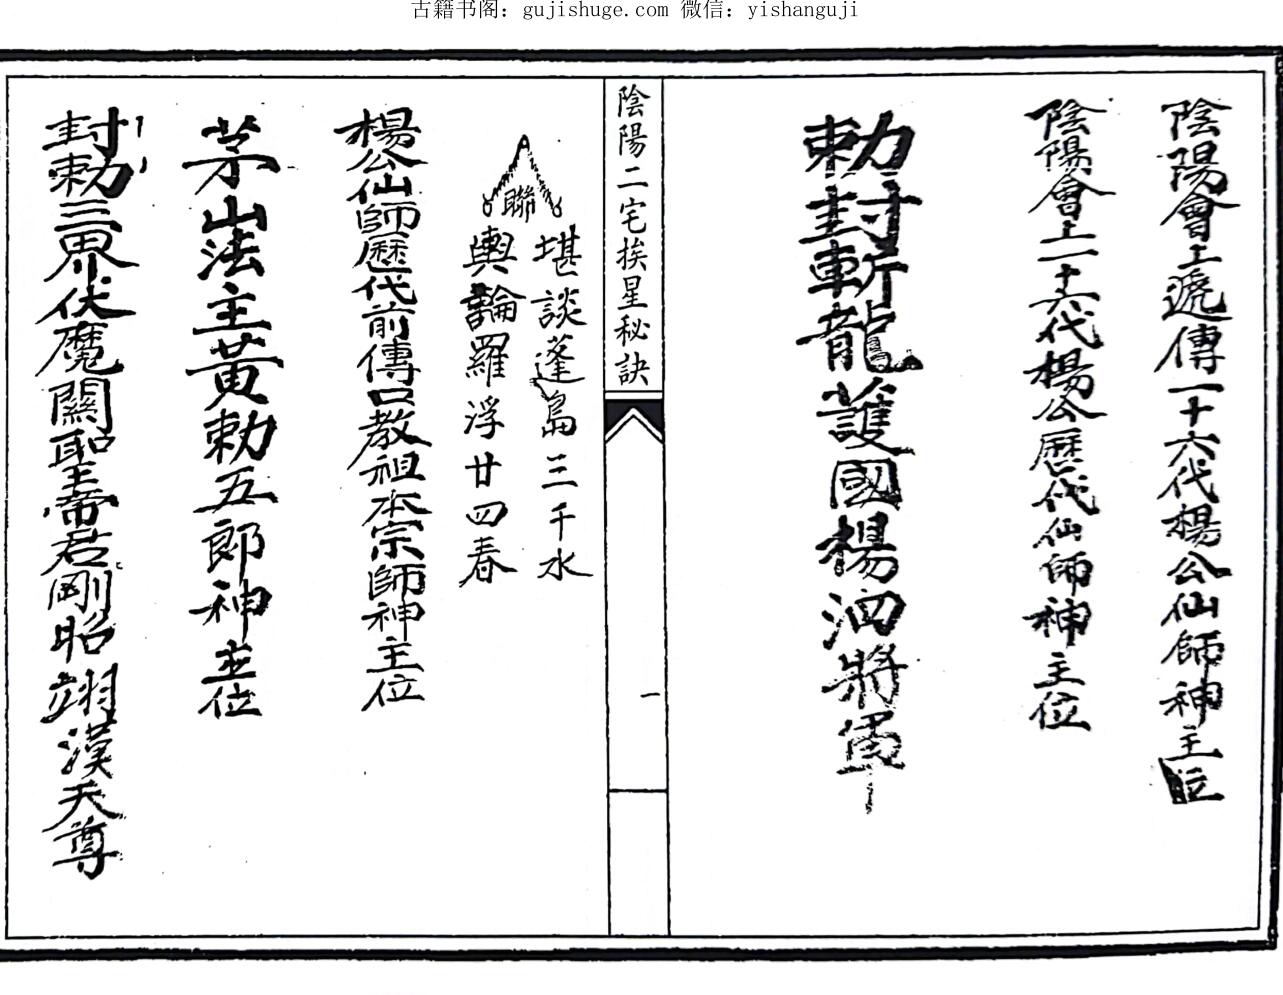 古籍书阁：gujishuge.com 微信：yishanguji
陰陽會上遞傳一十六代楊公仙師神主位
陰陽會上二十六代楊公歷代仙師神主位
勅封斬龍護國楊泗將軍
陰陽二宅挨星秘訣
一
聯
堪談蓬島三千水
輿論羅浮廿四春
楊公仙師歷代前傳口教祖本宗師神主位
茅山法主黃勅五郎神主位
封勅三界伏魔關聖帝君剛昭翊漢天尊